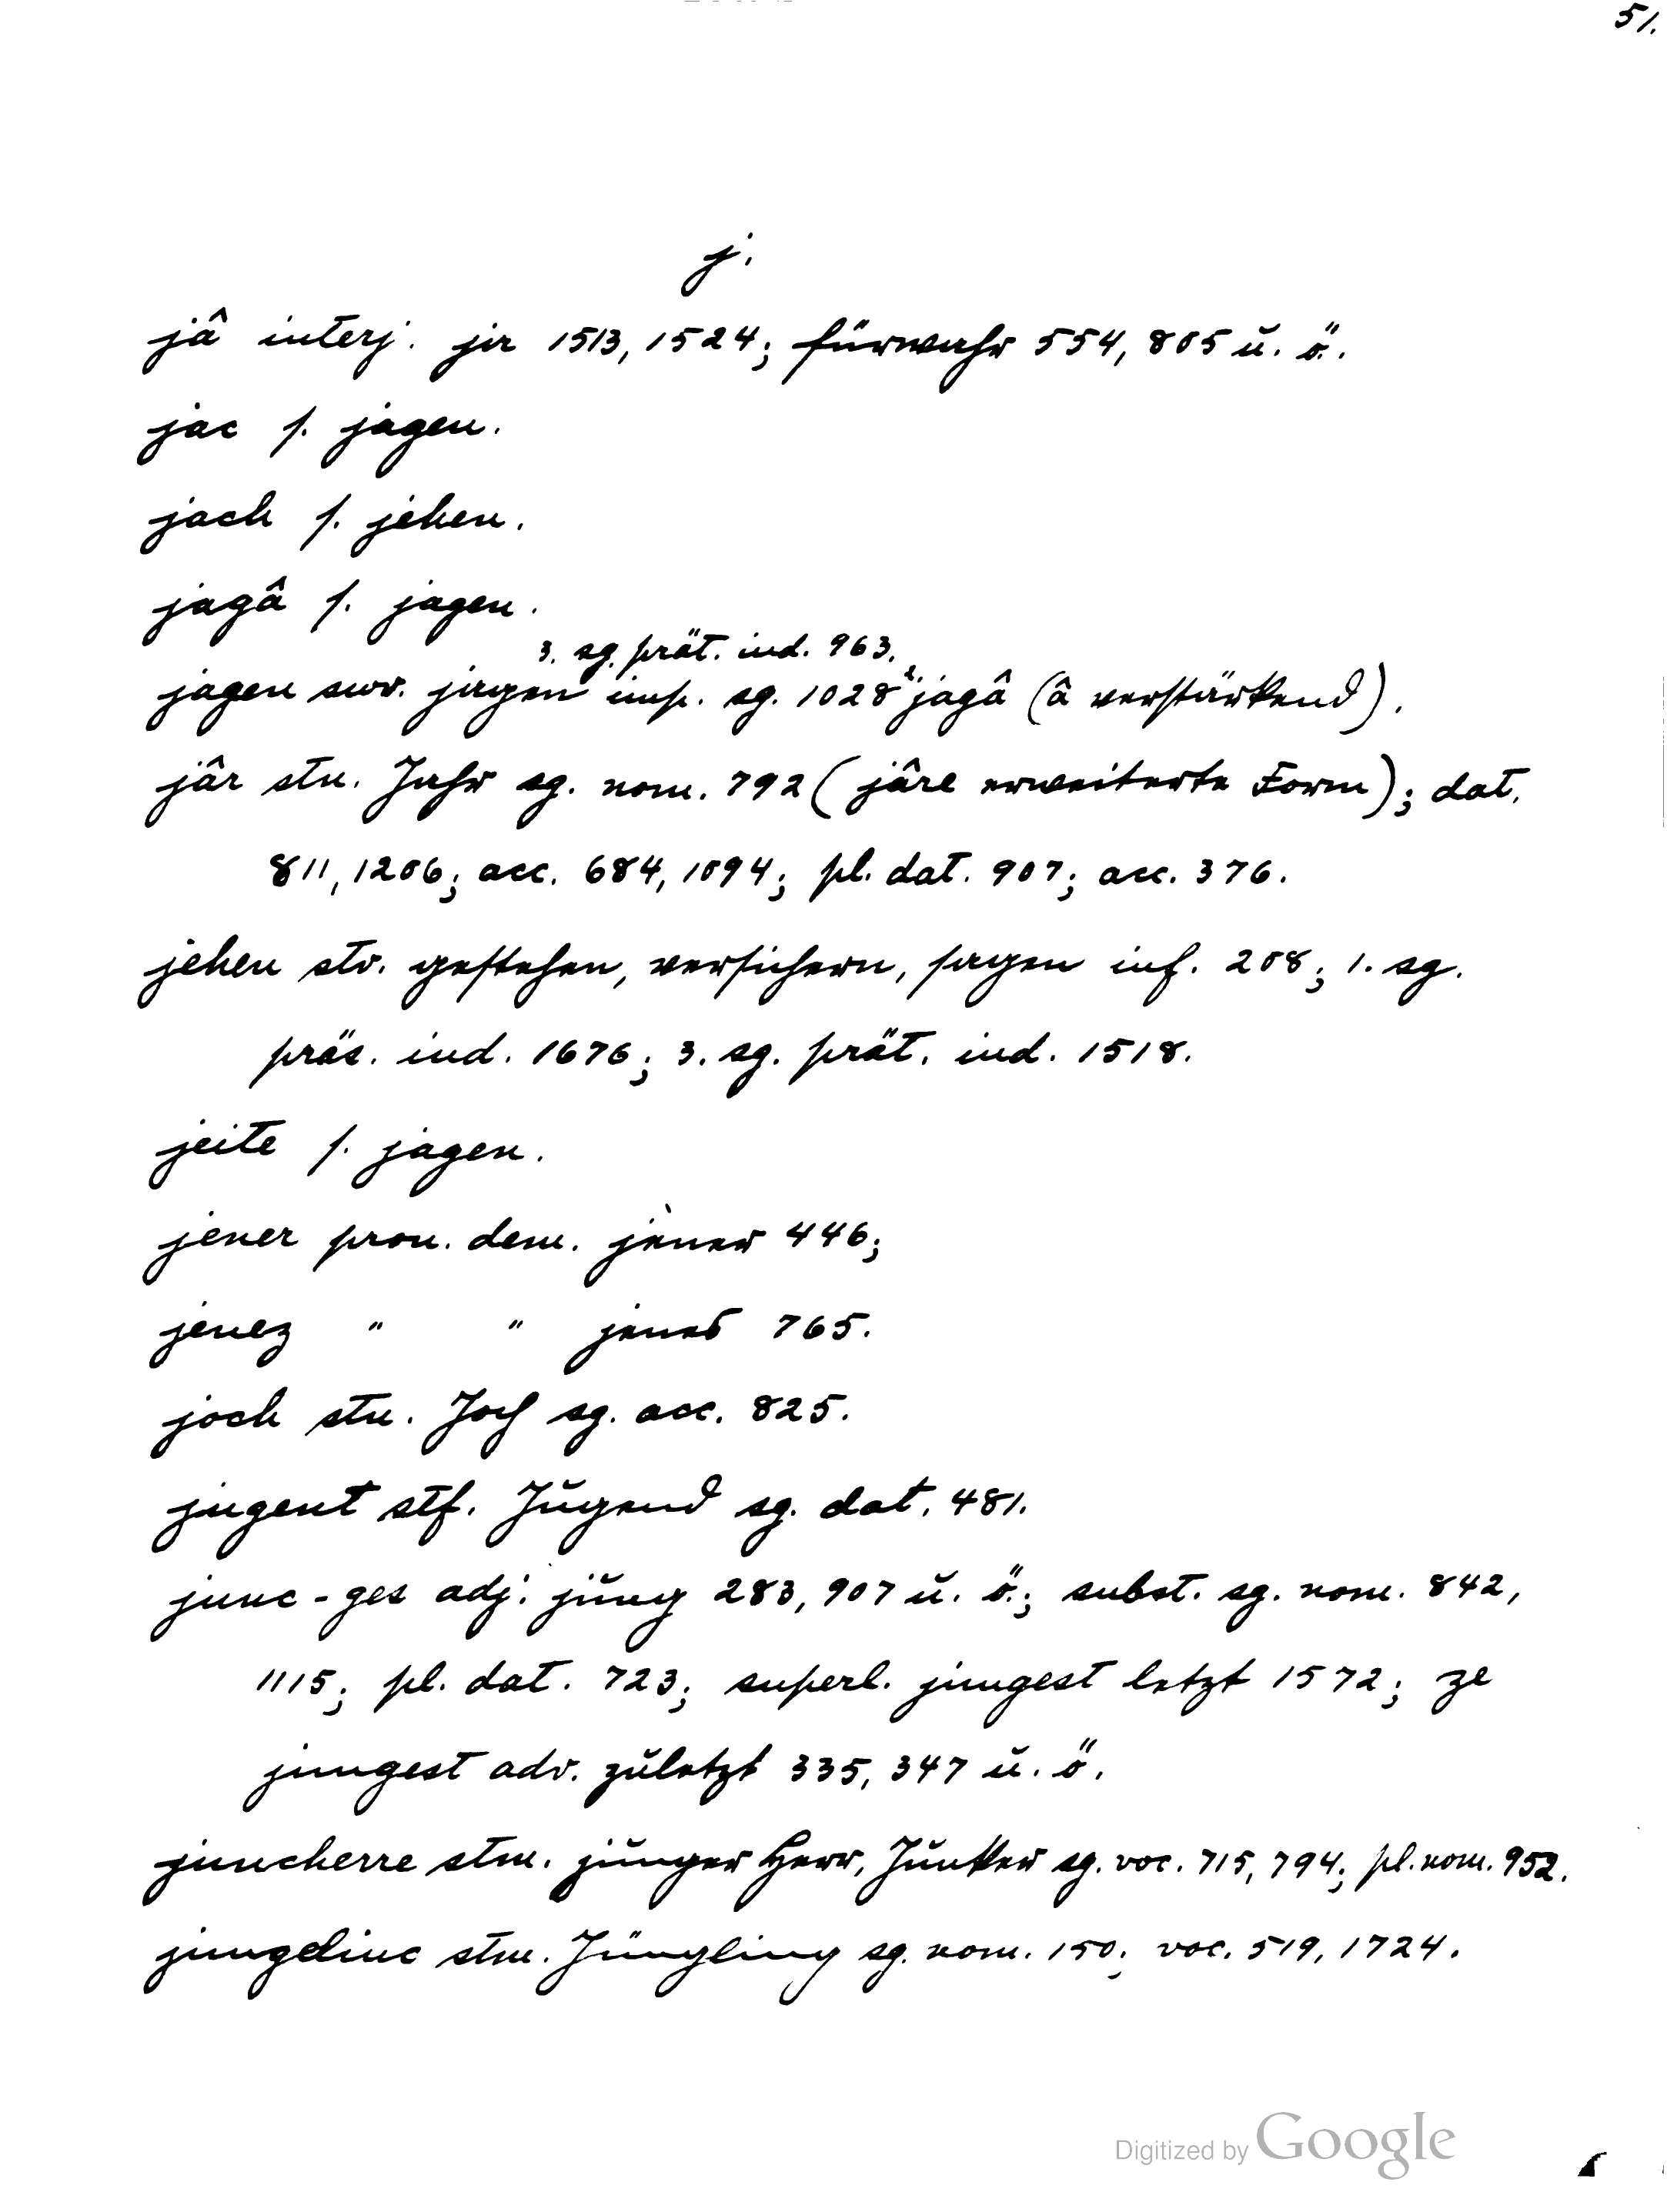 51.
j.
jâ interj. ja 1513, 1524; fürwahr 554, 805 u. ö.
jac s. jagen.
jach s. jehen.
jagâ s. jagen.
3. sg. prät. ind. 963.
jagen swv. jagen imp. sg. 1028 2. jagâ (â verstärkend).
jâr stn. Jahr sg. nom. 792 (jâre erweiterte Form); dat.
811, 1206; acc. 684, 1094; pl. dat. 907; acc. 376.
jehen stv. gestehen, versichern, sagen inf. 208; 1. sg.
präs. ind. 1676; 3. sg. prät. ind. 1518.
jeite s. jagen.
jener pron. dem. jener 446;
jenez " " jenes 765.
joch stn. Joch sg. acc. 825.
jugent stf. Jugend sg. dat. 481.
junc-ges adj. jung 283, 907 u. ö.; subst. sg. nom. 842,
1115; pl. dat. 723; superl. jungest letzt 1572; ze
jungest adv. zuletzt 335, 347 u. ö.
juncherre stm. junger Herr, Junker sg. voc. 715, 794; pl. nom. 952.
jungelinc stm. Jüngling sg. nom. 150; voc. 519, 1724.
Digitized by Google